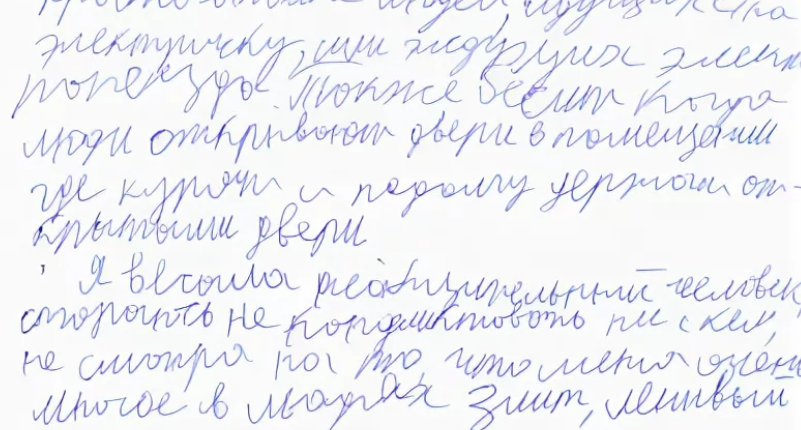 людей идущих на
электричку, или ждущих элект
ропоезда. Также бесит когда
люди открывают двери в помещении
где курят и подолгу держат от-
крытыми двери
Я весьма человек,
стараюсь не конфликтовать ни с кем,
не смотря на то, что меня очень
многое в людях злит, ленивый